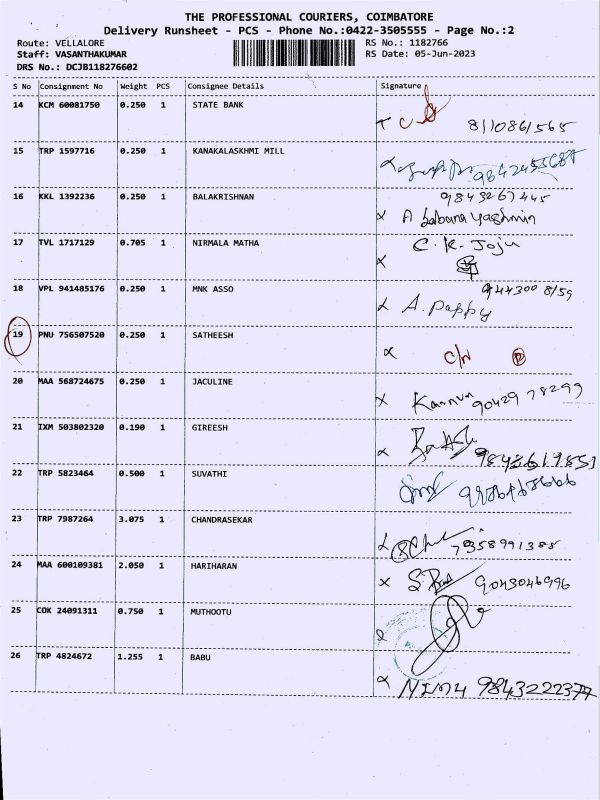 THE PROFESSIONAL COURIERS, COIMBATORE
Delivery Runsheet - PCS - Phone No.:0422-3505555 - Page No.:2
Route: VELLALORE RS No.: 1182766
Staff: VASANTHAKUMAR RS Date: 05-Jun-2023
DRS No.: DCJB118276602
S No Consignment No Weight PCS Consignee Details Signature
14 KCM 60081750 0.250 1 STATE BANK
8110861565
15 TRP 1597716 0.250 1 KANAKALASKHMI MILL
16 KKL 1392236 0.250 1 BALAKRISHNAN 9843267445
x A Sabana yashmin
17 TVL 1717129 0.705 1 NIRMALA MATHA C.K. Joju
x
18 VPL 941485176 0.250 1 MNK ASSO 944300 8159
A. Pappy
19 PNU 756507520 0.250 1 SATHEESH
C/N
20 MAA 568724675 0.250 1 JACULINE
x Kannan 90429 78299
21 IXM 503802320 0.190 1 GIREESH
22 TRP 5823464 0.500 1 SUVATHI
23 TRP 7987264 3.075 1 CHANDRASEKAR
7358991385
24 MAA 600109381 2.050 1 HARIHARAN
x 9043046996
25 COK 24091311 0.750 1 MUTHOOTU
26 TRP 4824672 1.255 1 BABU
9843222377